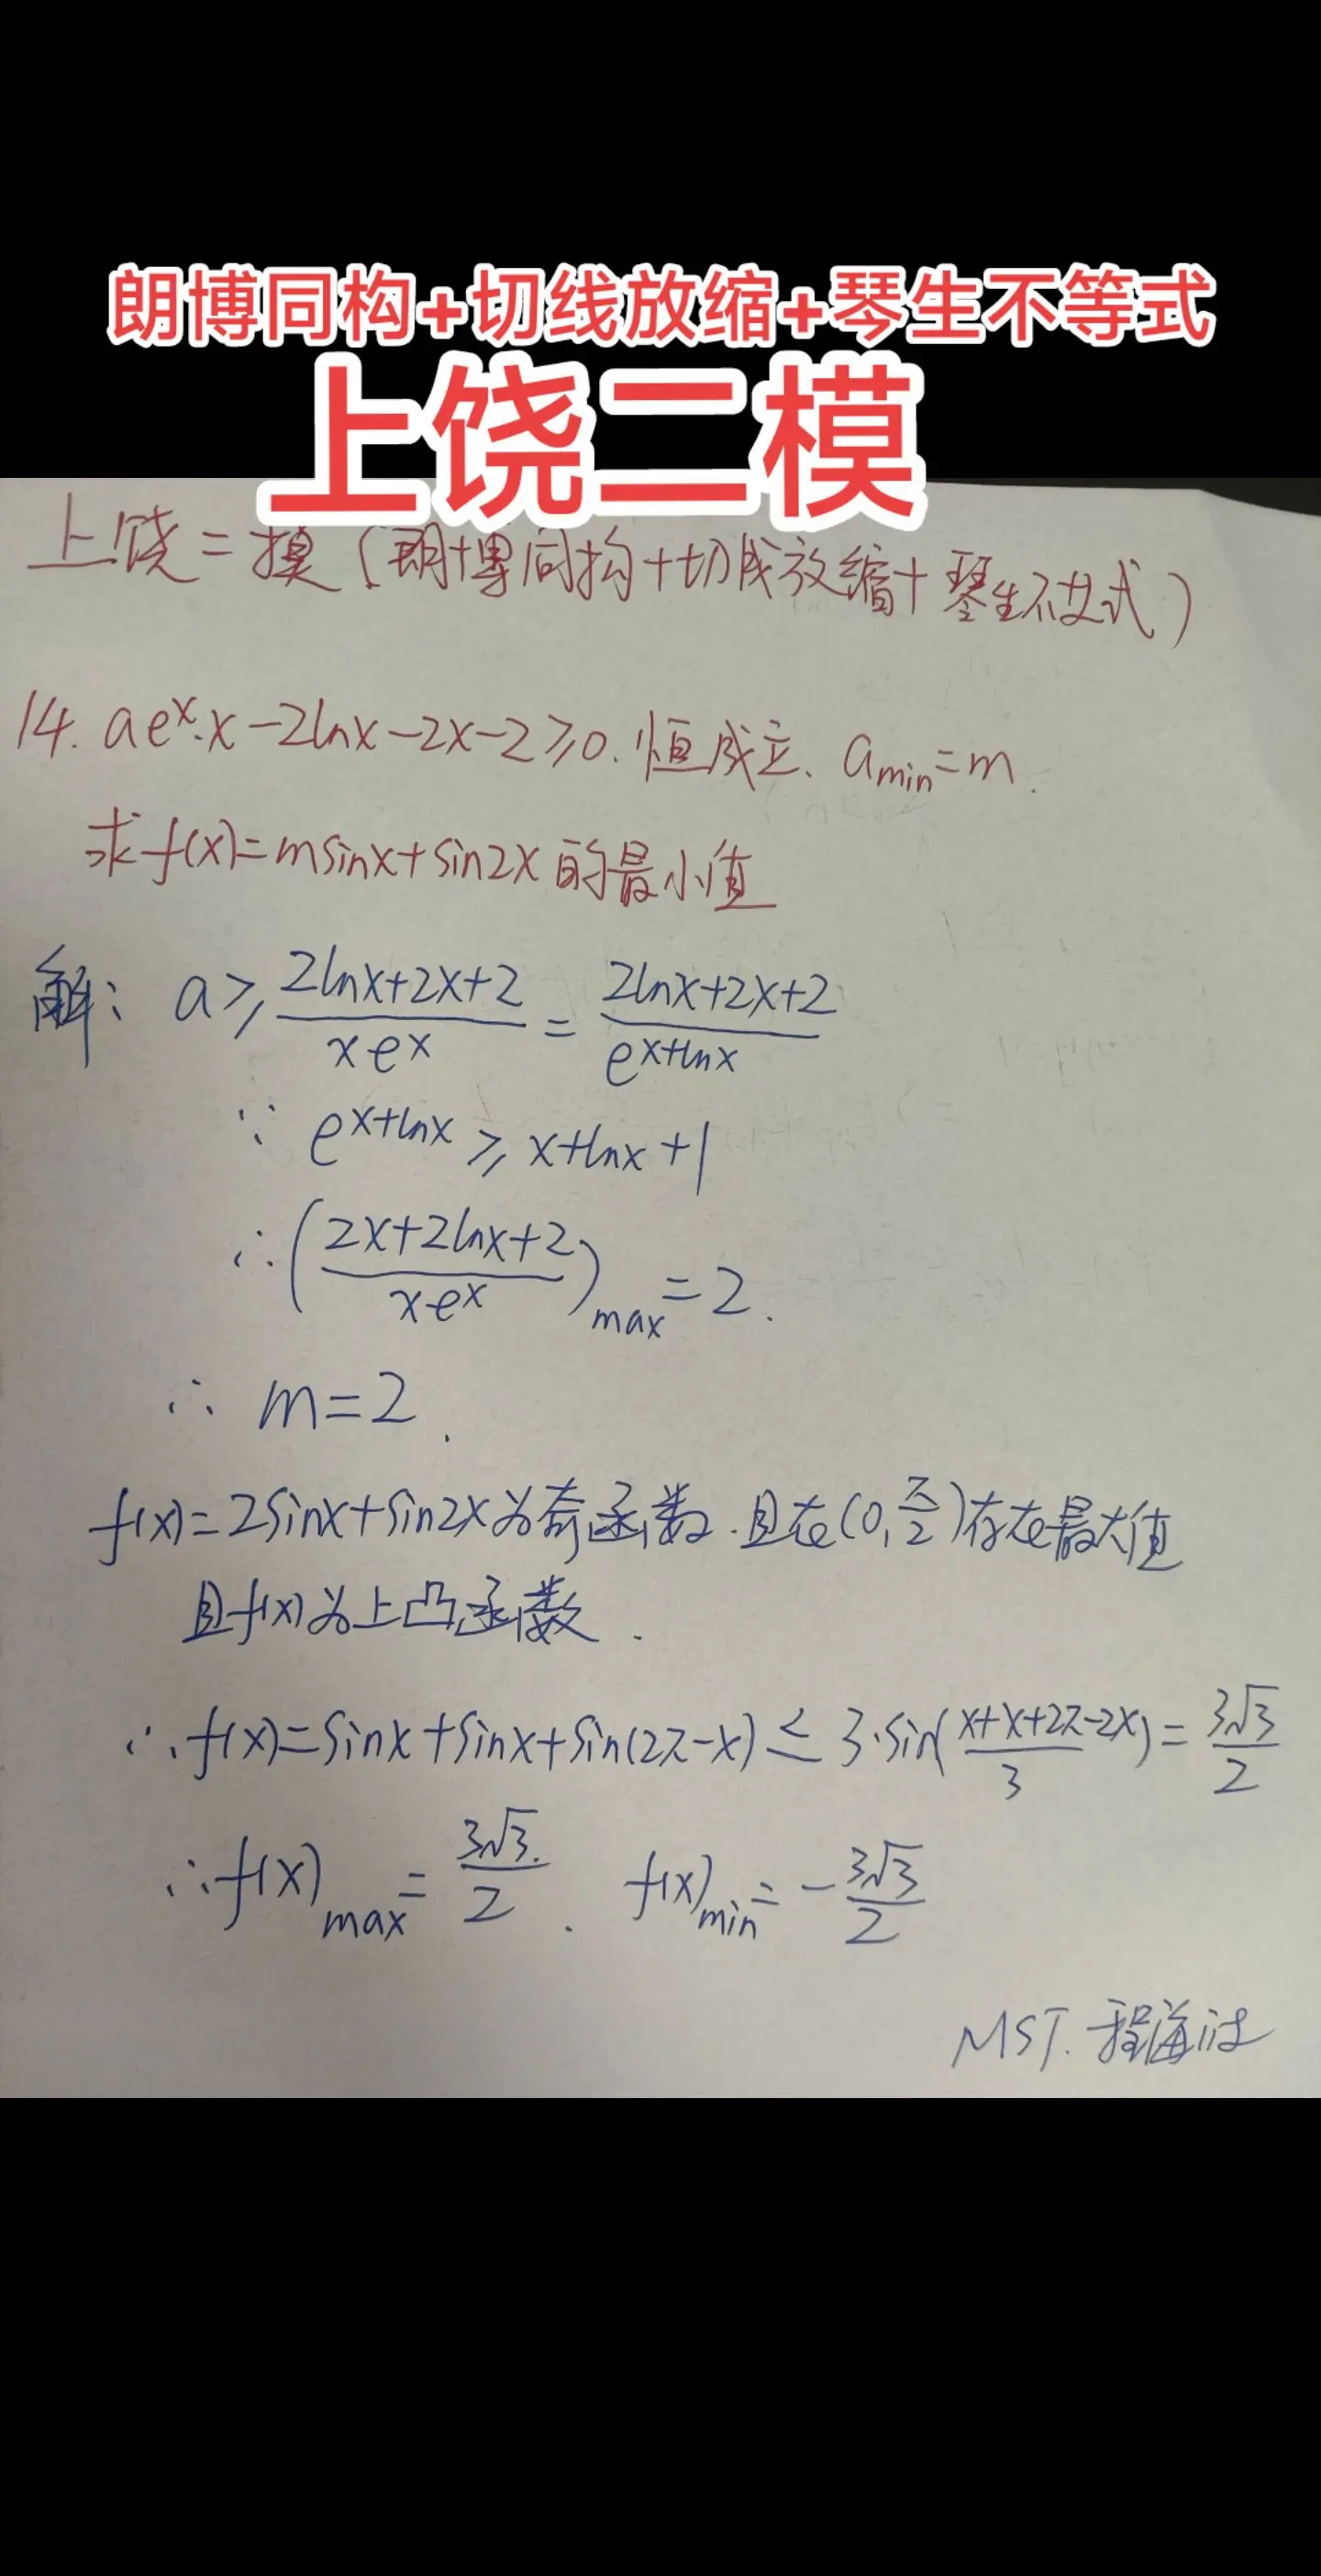 朗博同构+切线放缩+琴生不等式
上饶二模
上饶二摸(朗博同构+切线放缩+琴生不等式)
14. ae^x·x-2lnx-2x-2≥0.恒成立、a_min=m.
求f(x)=msinx+sin2x的最小值
解: a≥(2lnx+2x+2)/(xe^x)=(2lnx+2x+2)/(e^(x+lnx))
∵ e^(x+lnx)≥x+lnx+1
∴((2x+2lnx+2)/(x·e^x))_max=2.
∴ m=2.
f(x)=2sinx+sin2x为奇函数.且在(0,π/2)存在最大值
且f(x)为上凸函数.
∴f(x)=sinx+sinx+sin(2π-x)≤3·sin((x+x+2π-2x)/3)=3√3/2
∴f(x)_max=3√3/2. f(x)_min=-3√3/2
MST.程海